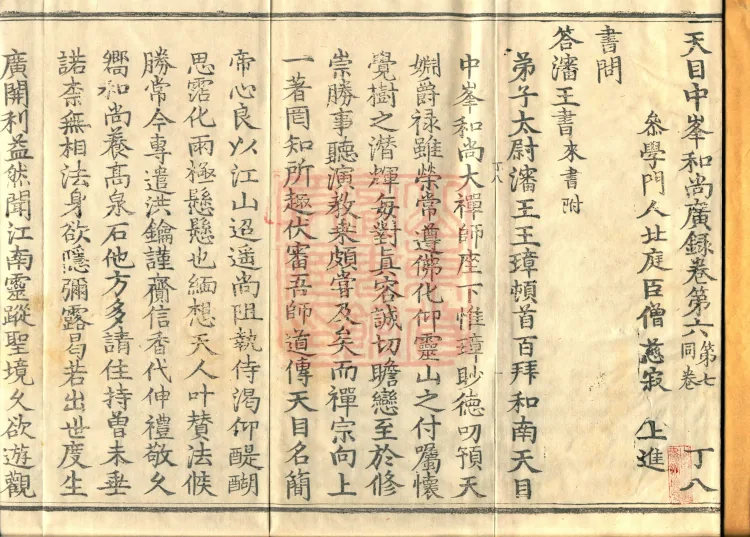 天目中峯和尚廣録卷第六 第七同卷 丁八
叅學門人北庭臣僧慈寂 上進
書問
荅瀋王書 来書附
弟子太尉瀋王王璋頓首百拜和南天目
丁八
中峯和尚大禪師座下惟璋眇徳叨預天
婣爵禄雖荣常遵佛化仰靈山之付囑懷
覺樹之潜輝每對真容誠切瞻戀至於修
崇勝事聽演教乗頗甞及矣而禪宗向上
一著罔知所趍伏審吾師道傳天目名簡
帝心良以江山迢遥尚阻執侍渴仰醍醐
思霑化雨極懸懸也緬想天人叶賛法候
勝常今專遣洪鑰謹齎信香代伸禮敬久
嚮和尚養髙泉石他方多請住持曽未垂
諾柰無相法身欲隱彌露曷若出世度生
廣開利益然聞江南靈蹤聖境久欲遊觀